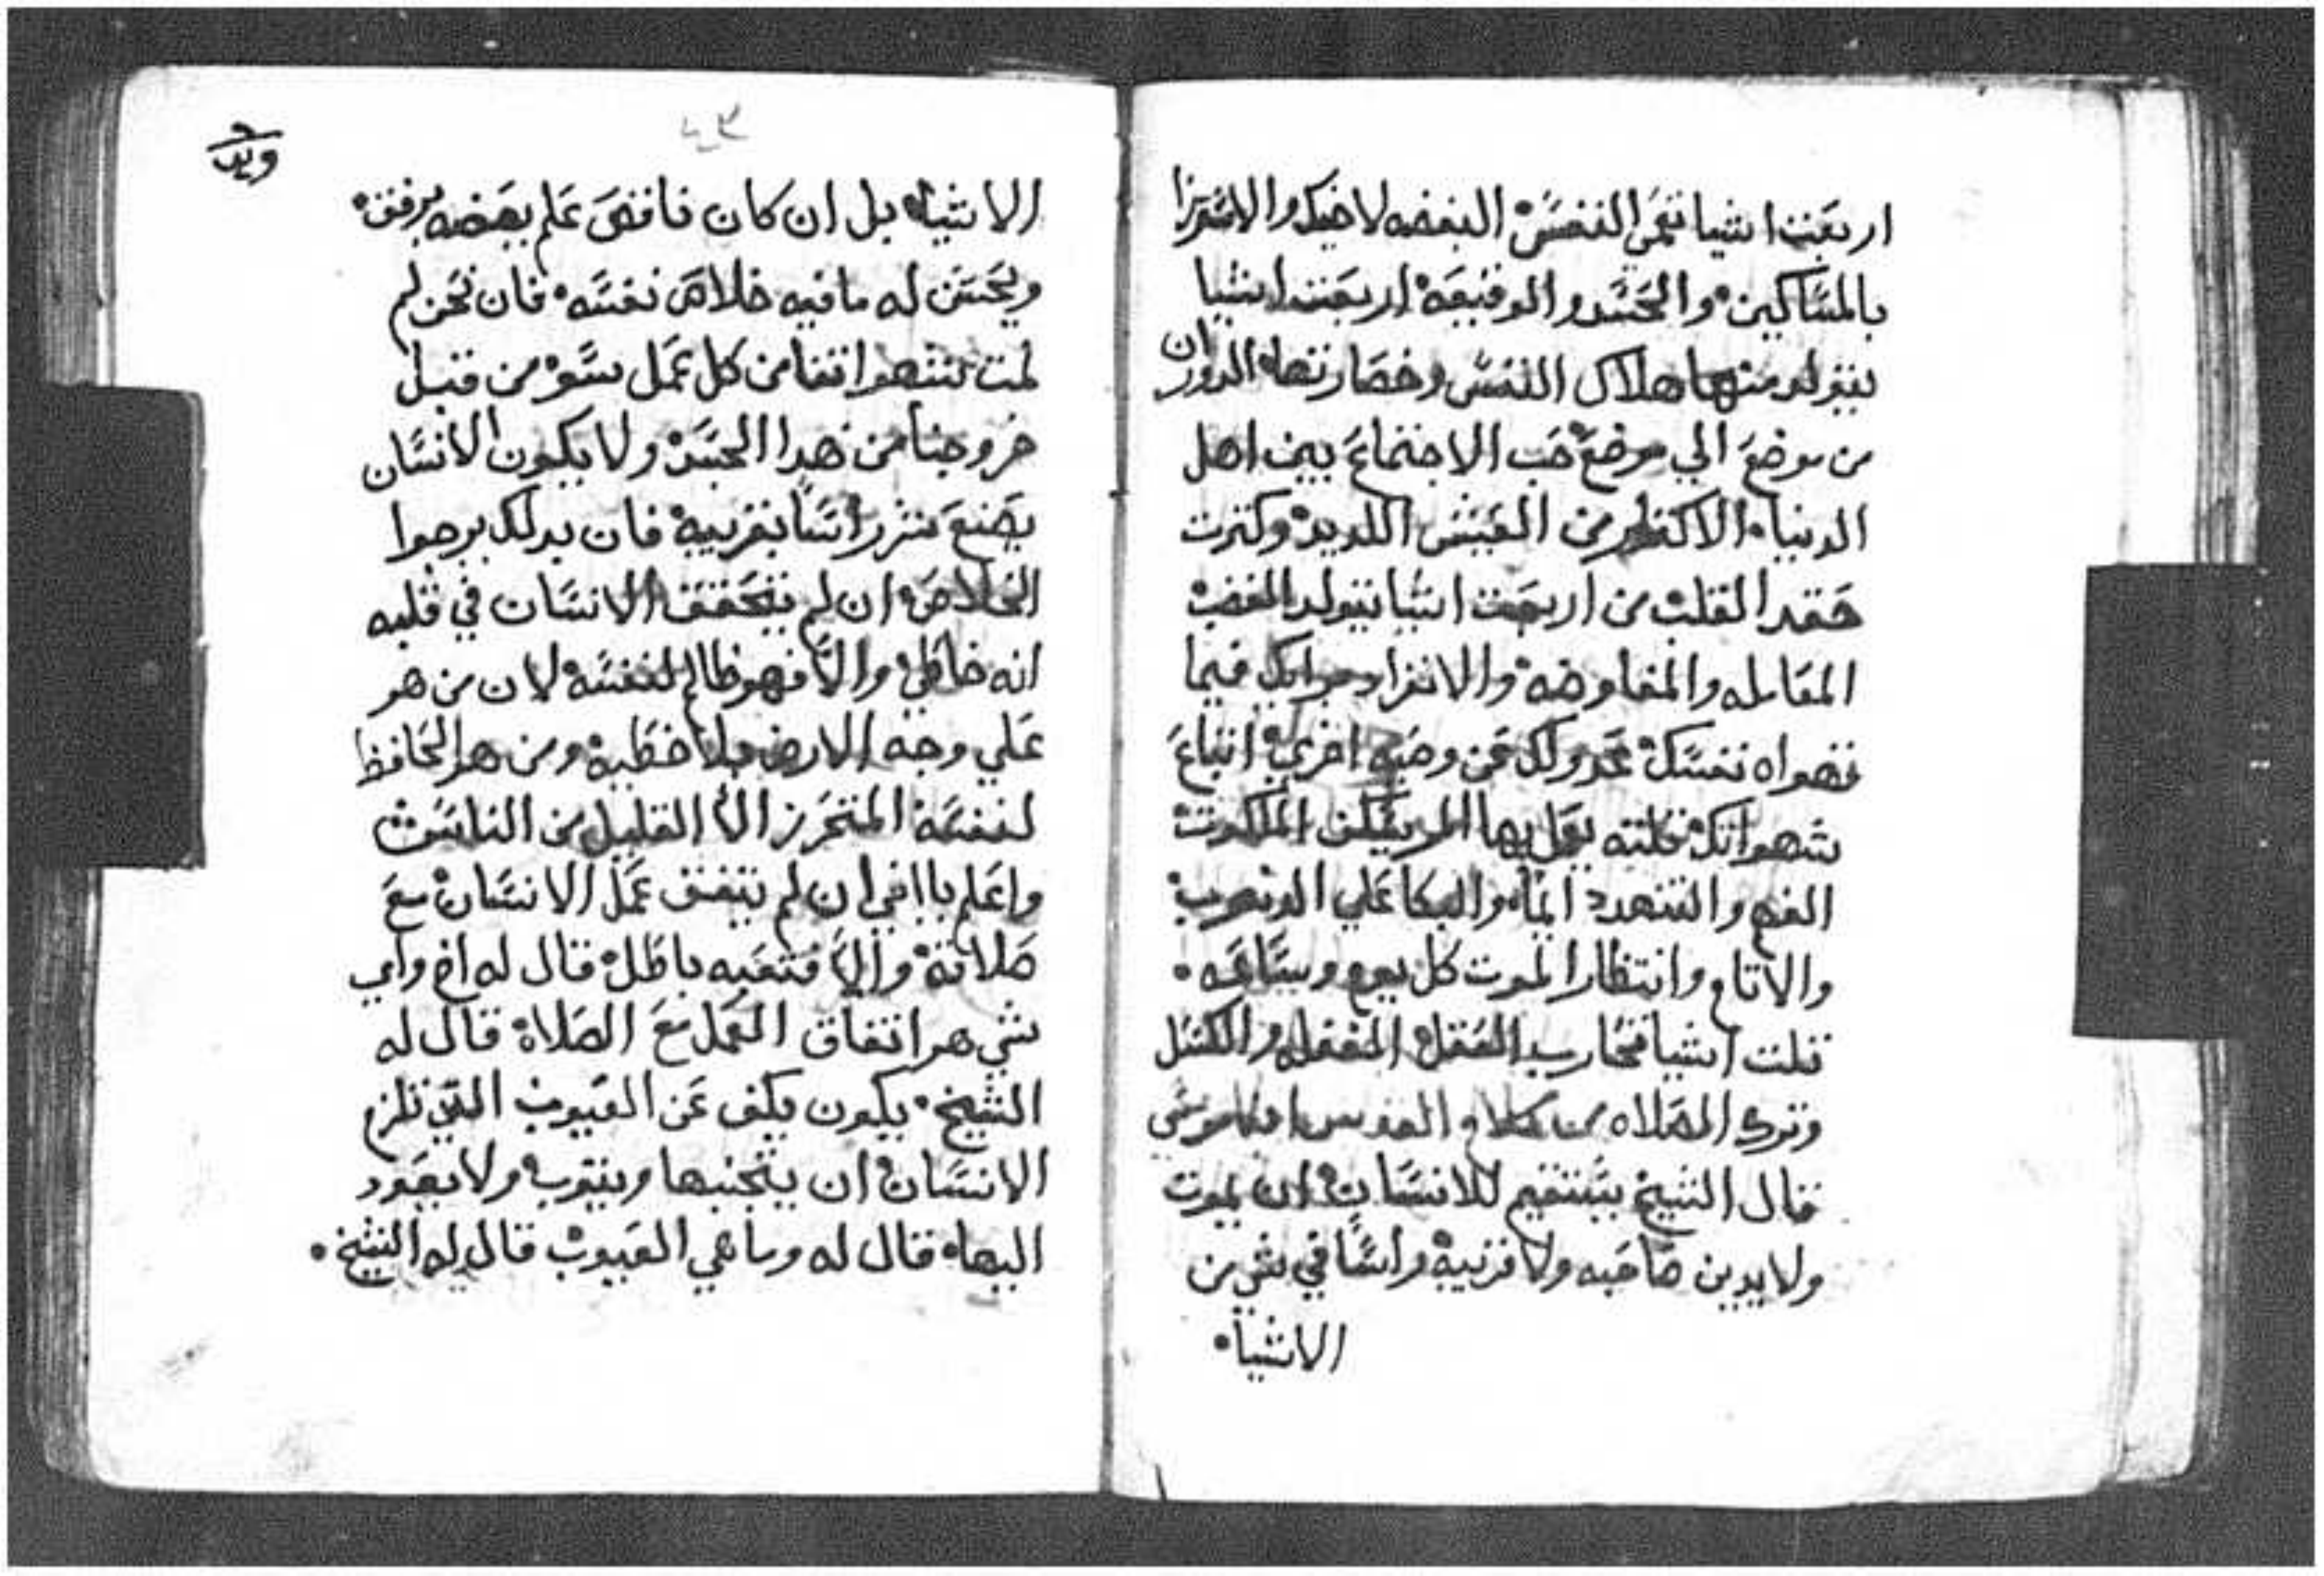 اربعت اشيا تعمي النفس البغضه لاخيك والاستهزا
بالمساكين والحسد والوقيعه اربعت اشيا
يتولد منها هلاك النفس وخصارتها الدوران
من موضع الي موضع حب الاجتماع بين اهل
الدنيا الاكتار من العيش اللديد وكترت
حقد القلب من اربعت اشيا يتولد الغضب
المعامله والمفاوضه والانفراد برايك فيما
تهواه نفسك عدولك عن وصيه اخري اتباع
شهواتك تلته بها الملكوت
الغم والتنهد دايما والبكا علي الدنوب
والاتام وانتظار الموت كل يوم وساعه
تلت اشيا تحارب العقل الغفله والكسل
وترك الصلاه من كلام القديس انبا موسي
قال الشيخ يستقيم للانسان ان يموت
ولا يدين صاحبه ولا قريبه راسا في شي من
الاشيا
الاشيا بل ان كان ناقص علم يعضه برفق
ويحسن له ما فيه خلاص نفسه فان نحن لم
نمت شهواتنا من كل عمل سو من قبل
خروجنا من هدا الجسد ولا يكون الانسان
يصنع شر راسا بقريبه فان بدلك يرجوا
الخلاص ان لم يتحقق الانسان في قلبه
انه خاطي والا فهو ظالم لنفسه لان من هو
علي وجه الارض بلا خطيه ومن هو الحافظ
لنفسه المتحرز الا القليل من الناس
واعلم يا اخي ان لم يتفق عمل الانسان مع
صلاته والا فتعبه باطل قال له اخ واي
شي هو اتفاق العمل مع الصلاه قال له
الشيخ يكون يكف عن العيوب التي تلزم
الانسان ان يتجنبها ويتوب ولا يعود
اليها فقال له وما هي العيوب قال له الشيخ